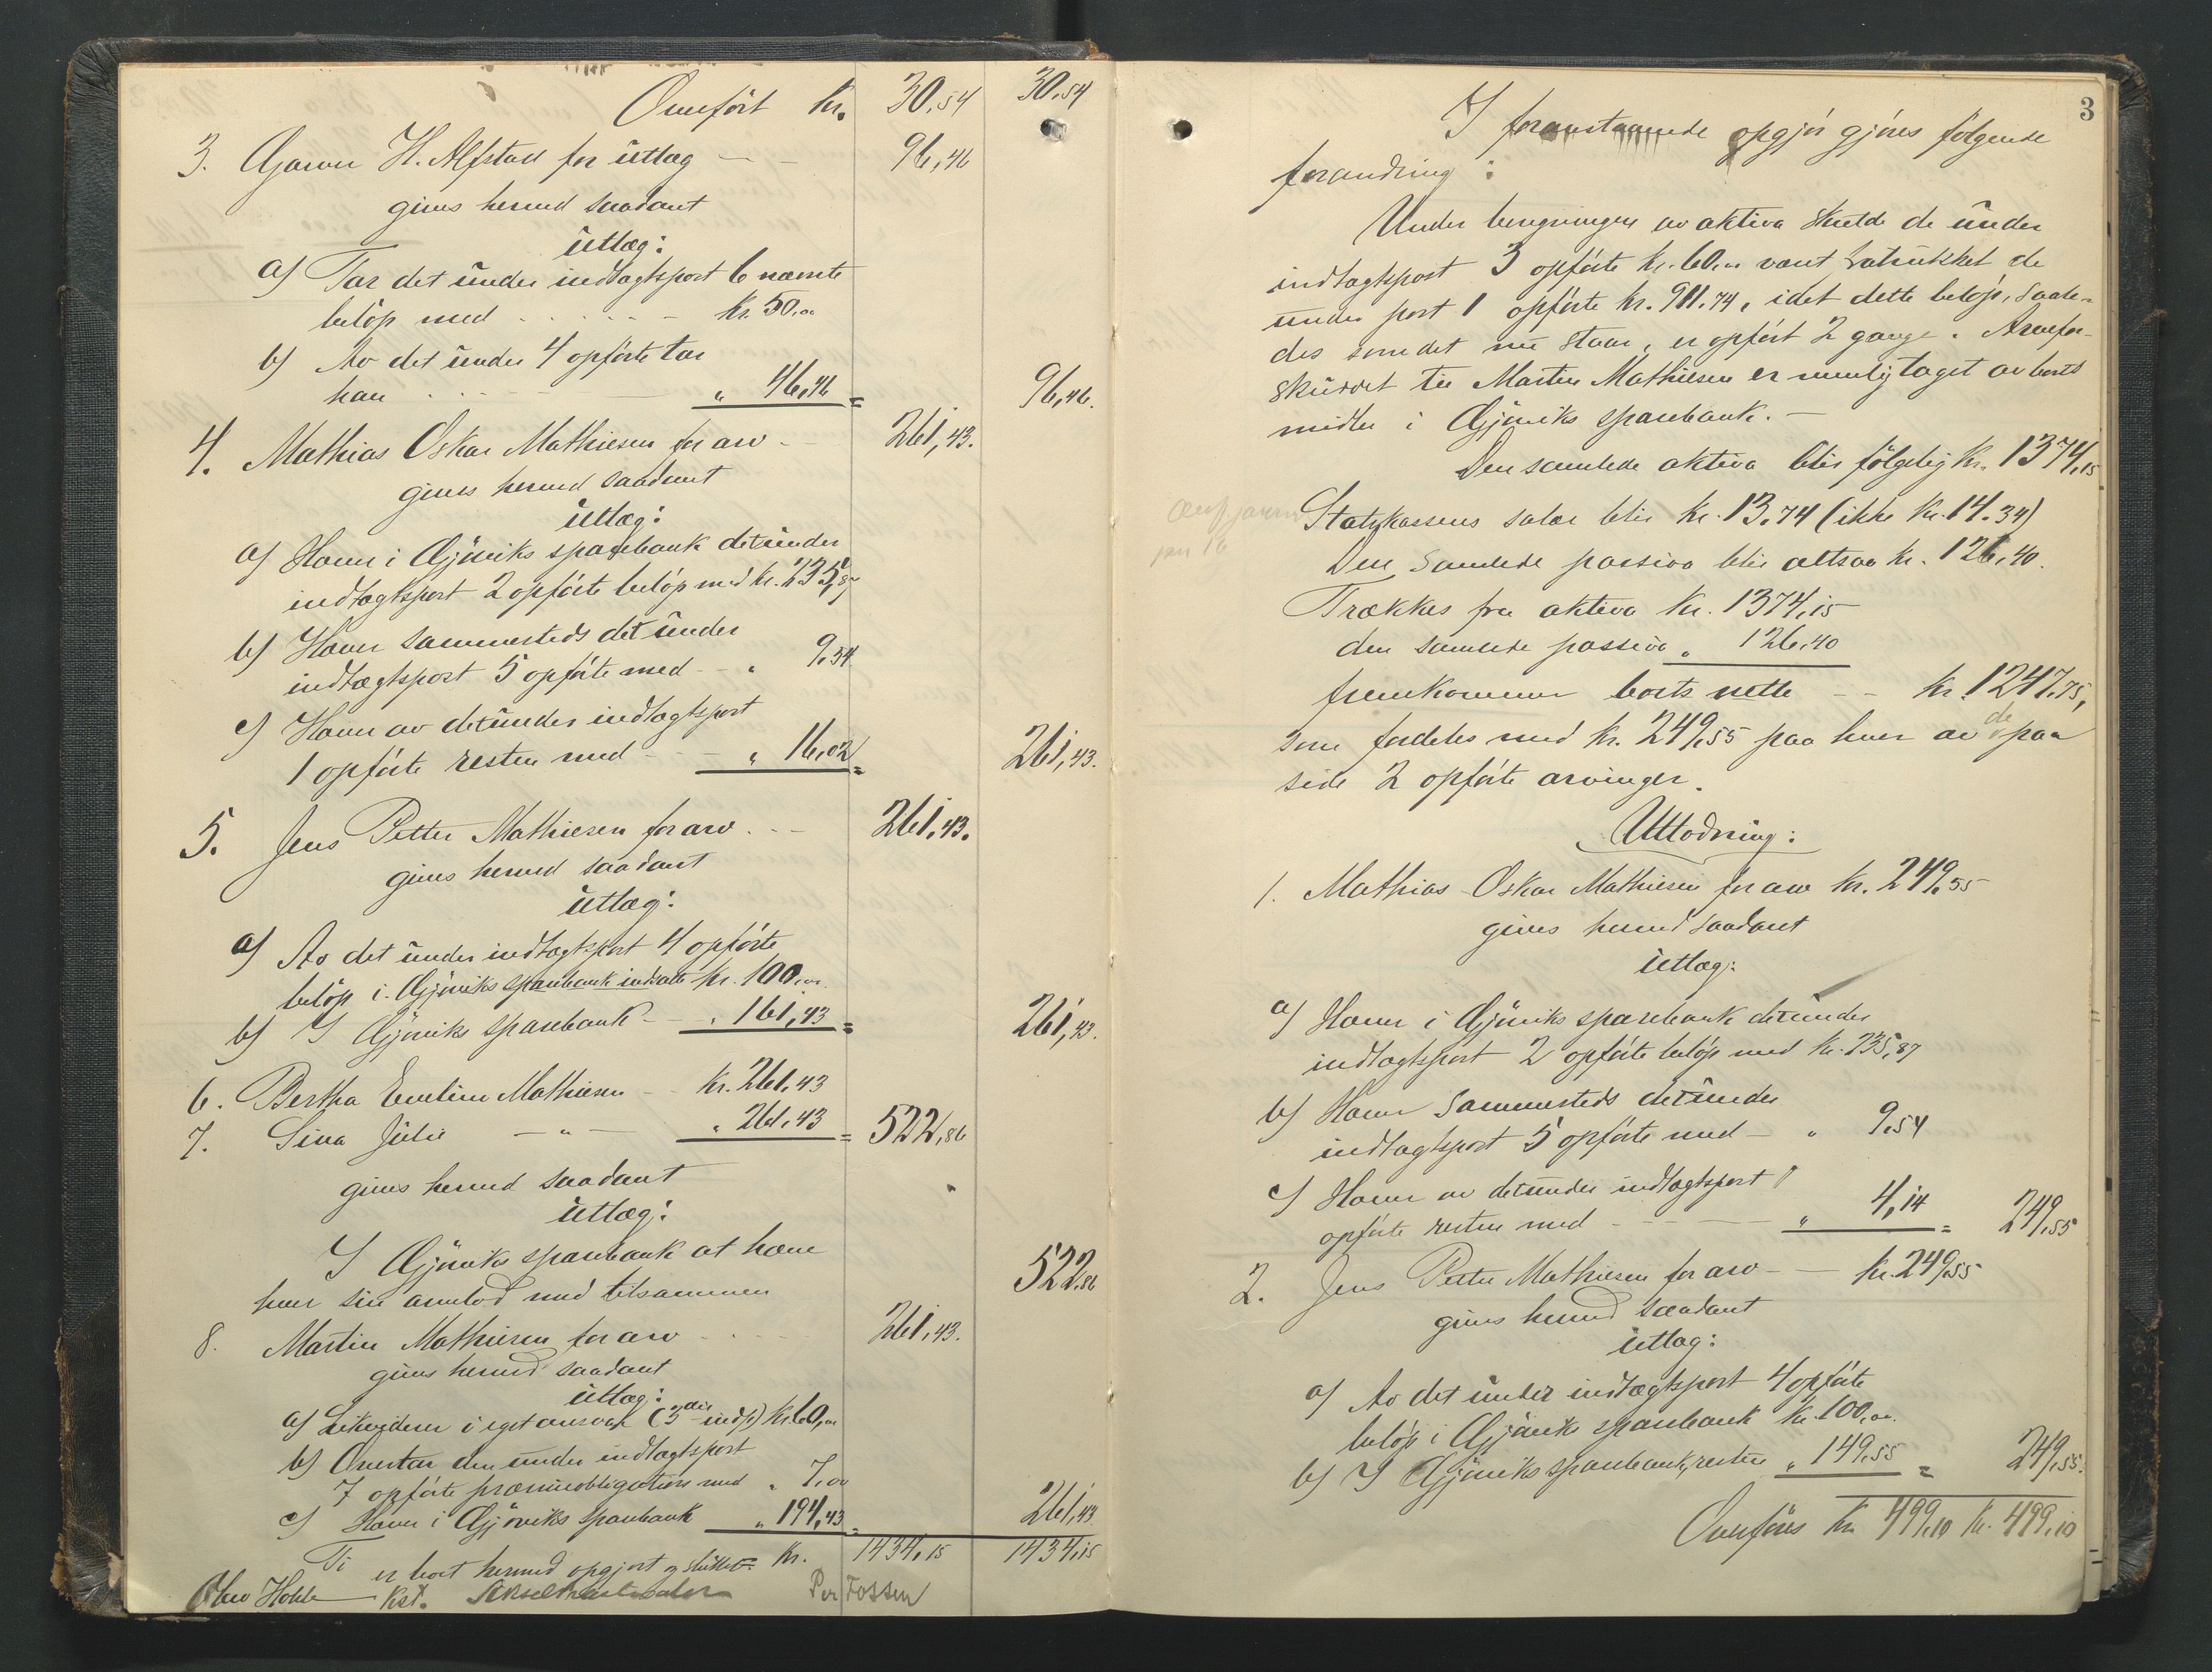 Overført Kr. 30,54 30,54
3. Gjøvik H. Alfstad for utlæg – – 96,46
gives herved saadant
utlæg:
a) Tar det under indtægtspost 6 nævnte
beløp med . . . . . – kr. 50,00
b) Av det under 4 opførte tar
han . . . – – „ 46,46 = 96,46.
4. Mathias Oskar Mathiesen for arv – 261,43.
gives herved saadant
utlæg:
a) Hæver i Gjøviks sparebank det under
indtægtspost 2 opførte beløp med kr. 235,87
b) Hæver sammesteds det under
indtægtspost 5 opførte med – „ 9,54
c) Hæver av det under indtægtspost
1 opførte resten med – – „ 16,02 = 261,43.
5. Jens Petter Mathiesen for arv . . – 261,43.
gives herved saadant
utlæg:
a) Av det under indtægtspost 4 opførte
beløp i Gjøviks sparebank indsatte kr. 100,00.
b) I Gjøviks sparebank – „ 161,43 = 261,43.
6. Bertha Emeline Mathiesen – kr. 261,43
7. Sina Julie – „ – „ 261,43 = 522,86
gives herved saadant
utlæg:
I Gjøviks sparebank at hæve
hver sin arvelod med tilsammen 522.86
8. Martin Mathiesen for arv . . . 261,43.
gives herved saadant
utlæg:
a) Likviderer i eget ansvar (3die indt) kr. 60,00
b) Overtar den under indtægtspost
7 opførte præmieobligation med „ 7,00
c) Hæver i Gjøviks sparebank „ 194,43 = 261,43
Ti er boet herved opgjort og sluttet – Kr. 1434,15 1434,15
Kst. Per Fossen
3
I foranstaaende opgjør gjøres følgende
forandring:
Under beregningen av aktiva skulde de under
indtægtspost 3 opførte kr. 60,00 været fratrukket de
under post 1 opførte kr. 911.74, idet dette beløp, saale-
des som det nu staar, er opført 2 gange. Arvefor-
skuddet til Martin Mathiesen er nemlig taget av boets
midler i Gjøviks sparebank. –
Den samlede aktiva blir følgelig kr. 1374,15
Statskassens salær blir kr. 13.74 (ikke kr. 14.34)
Den samlede passiva blir altsaa kr. 126,40.
Trækkes fra aktiva kr. 1374,15
den samlede passiva „ 126,40
fremkommer boets netto – – kr. 1247.75,
som fordeles med kr. 249,55 paa hver av de paa
side 2 opførte arvinger.
Utlodning:
1. Mathias Oskar Mathiesen for arv kr. 249,55
gives herved saadant
utlæg:
a) Hæver i Gjøviks sparebank det under
indtægtspost 2 opførte beløp med kr. 235,87
b) Hæver sammesteds det under
indtægtspost 5 opførte med – „ 9,54
c) Hæver av det under indtægtspost 1
opførte resten med – – – „ 4,14 = 249,55
2. Jens Petter Mathiesen for arv – – kr. 249,55
gives herved saadant
utlæg:
a) Av det under indtægtspost 4 opførte
beløp i Gjøviks sparebank kr. 100,00.
b) I Gjøviks sparebank, resten „ 149,55 = 249,55.
Overføres Kr. 499,10 Kr. 499,10